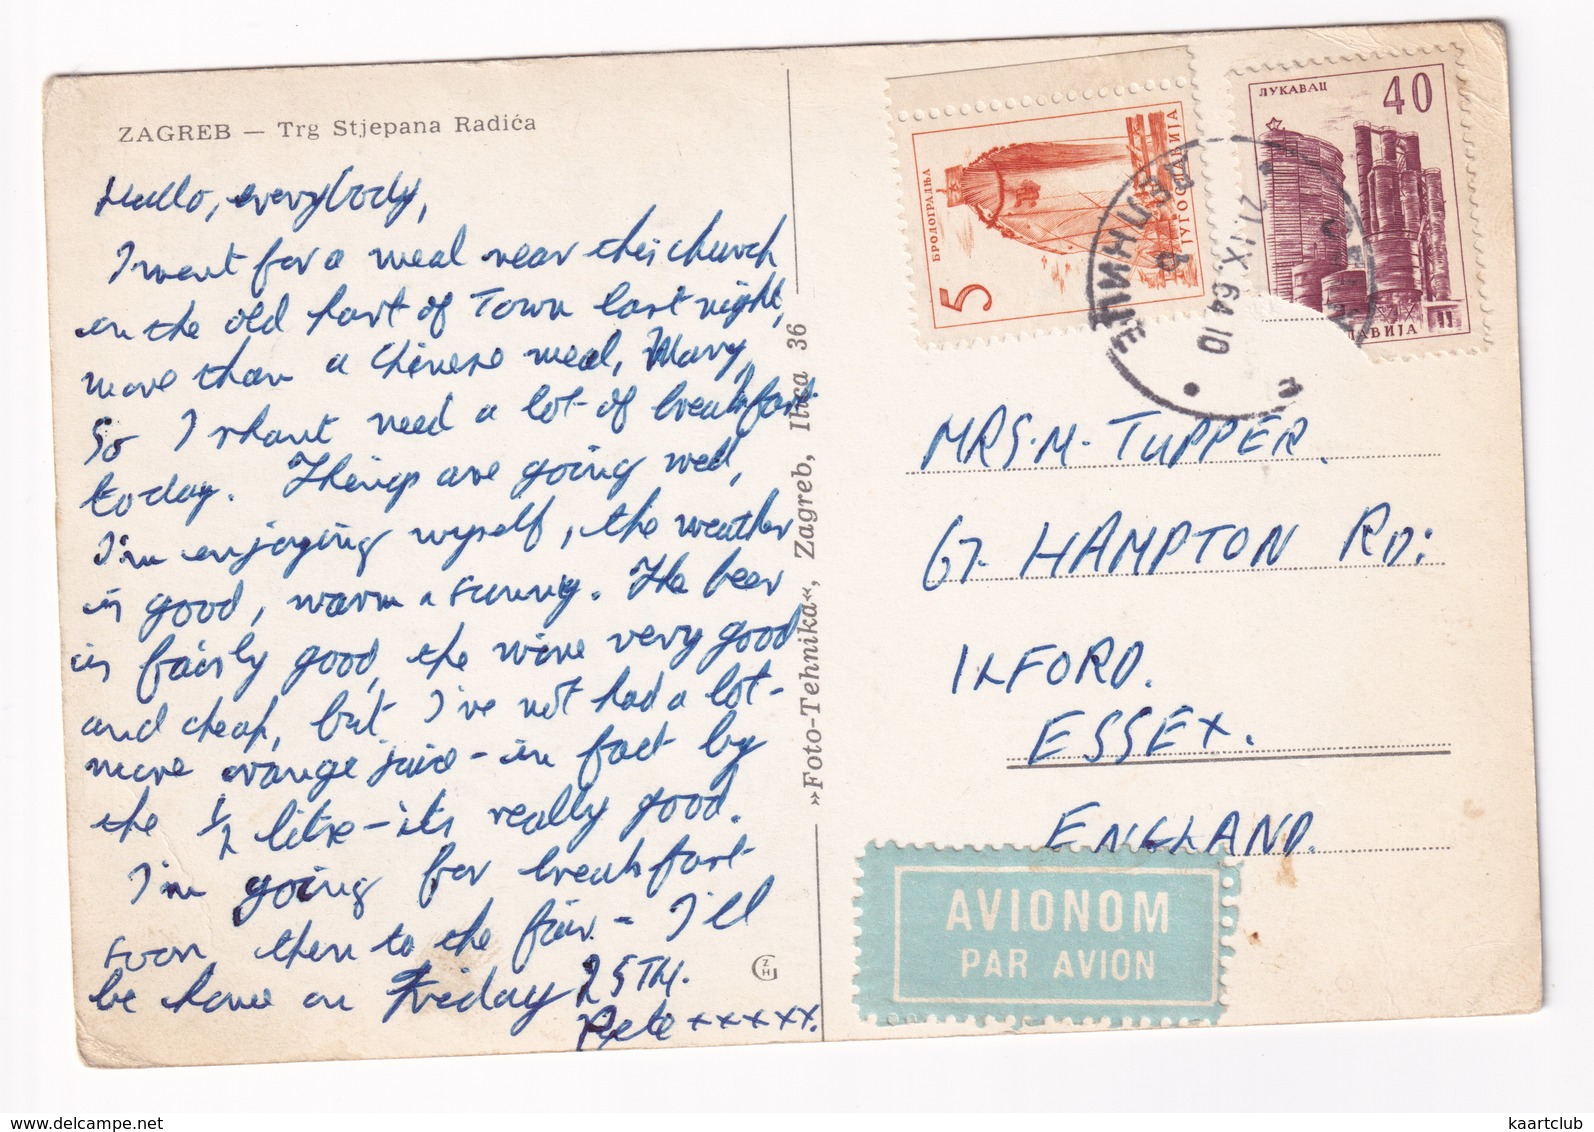 ZAGREB — Trg Stjepana Radića
Hello, everybody,
I went for a meal near this church
in the old part of Town last night,
more than a Chinese meal, Mary,
So I shant need a lot of breakfast
today. Things are going well,
I'm enjoying myself, the weather
is good, warm & sunny. The beer
is fairly good, the wine very good
and cheap, but I've not had a lot-
more orange juice - in fact by
the 1/2 litre - its really good.
I'm going for breakfast
soon, then to the fair - I'll
be home on Friday 25TH.
Pete xxxxxx.
»Foto-Tehnika«, Zagreb, Ilica 36
ZGH
БРОДОГРАДЊА
5
ЈУГОСЛАВИЈА
ЛУКАВАЦ
40
ЛАВИЈА
21.IX.64 10
MRS. M. TUPPER.
67. HAMPTON RD:
ILFORD.
ESSEX.
ENGLAND.
AVIONOM
PAR AVION
kaartclub